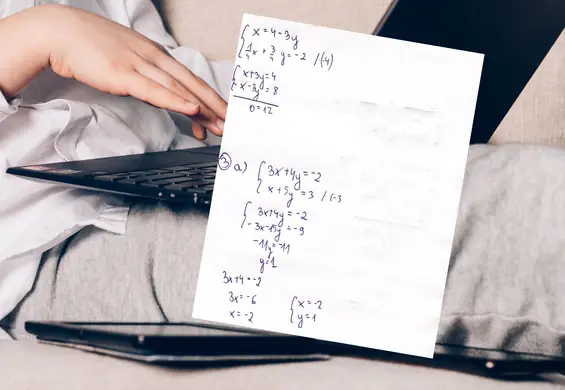 { x = 4 - 3y
{ 1/4 x + 3/4 y = -2 /·(-4)
{ x + 3y = 4
{ -x - 3y = 8
0 = 12
③ a) { 3x + 4y = -2
{ x + 5y = 3 /·(-3
{ 3x + 4y = -2
{ -3x - 15y = -9
-11y = -11
y = 1
3x + 4 = -2
3x = -6
x = -2
{ x = -2
{ y = 1